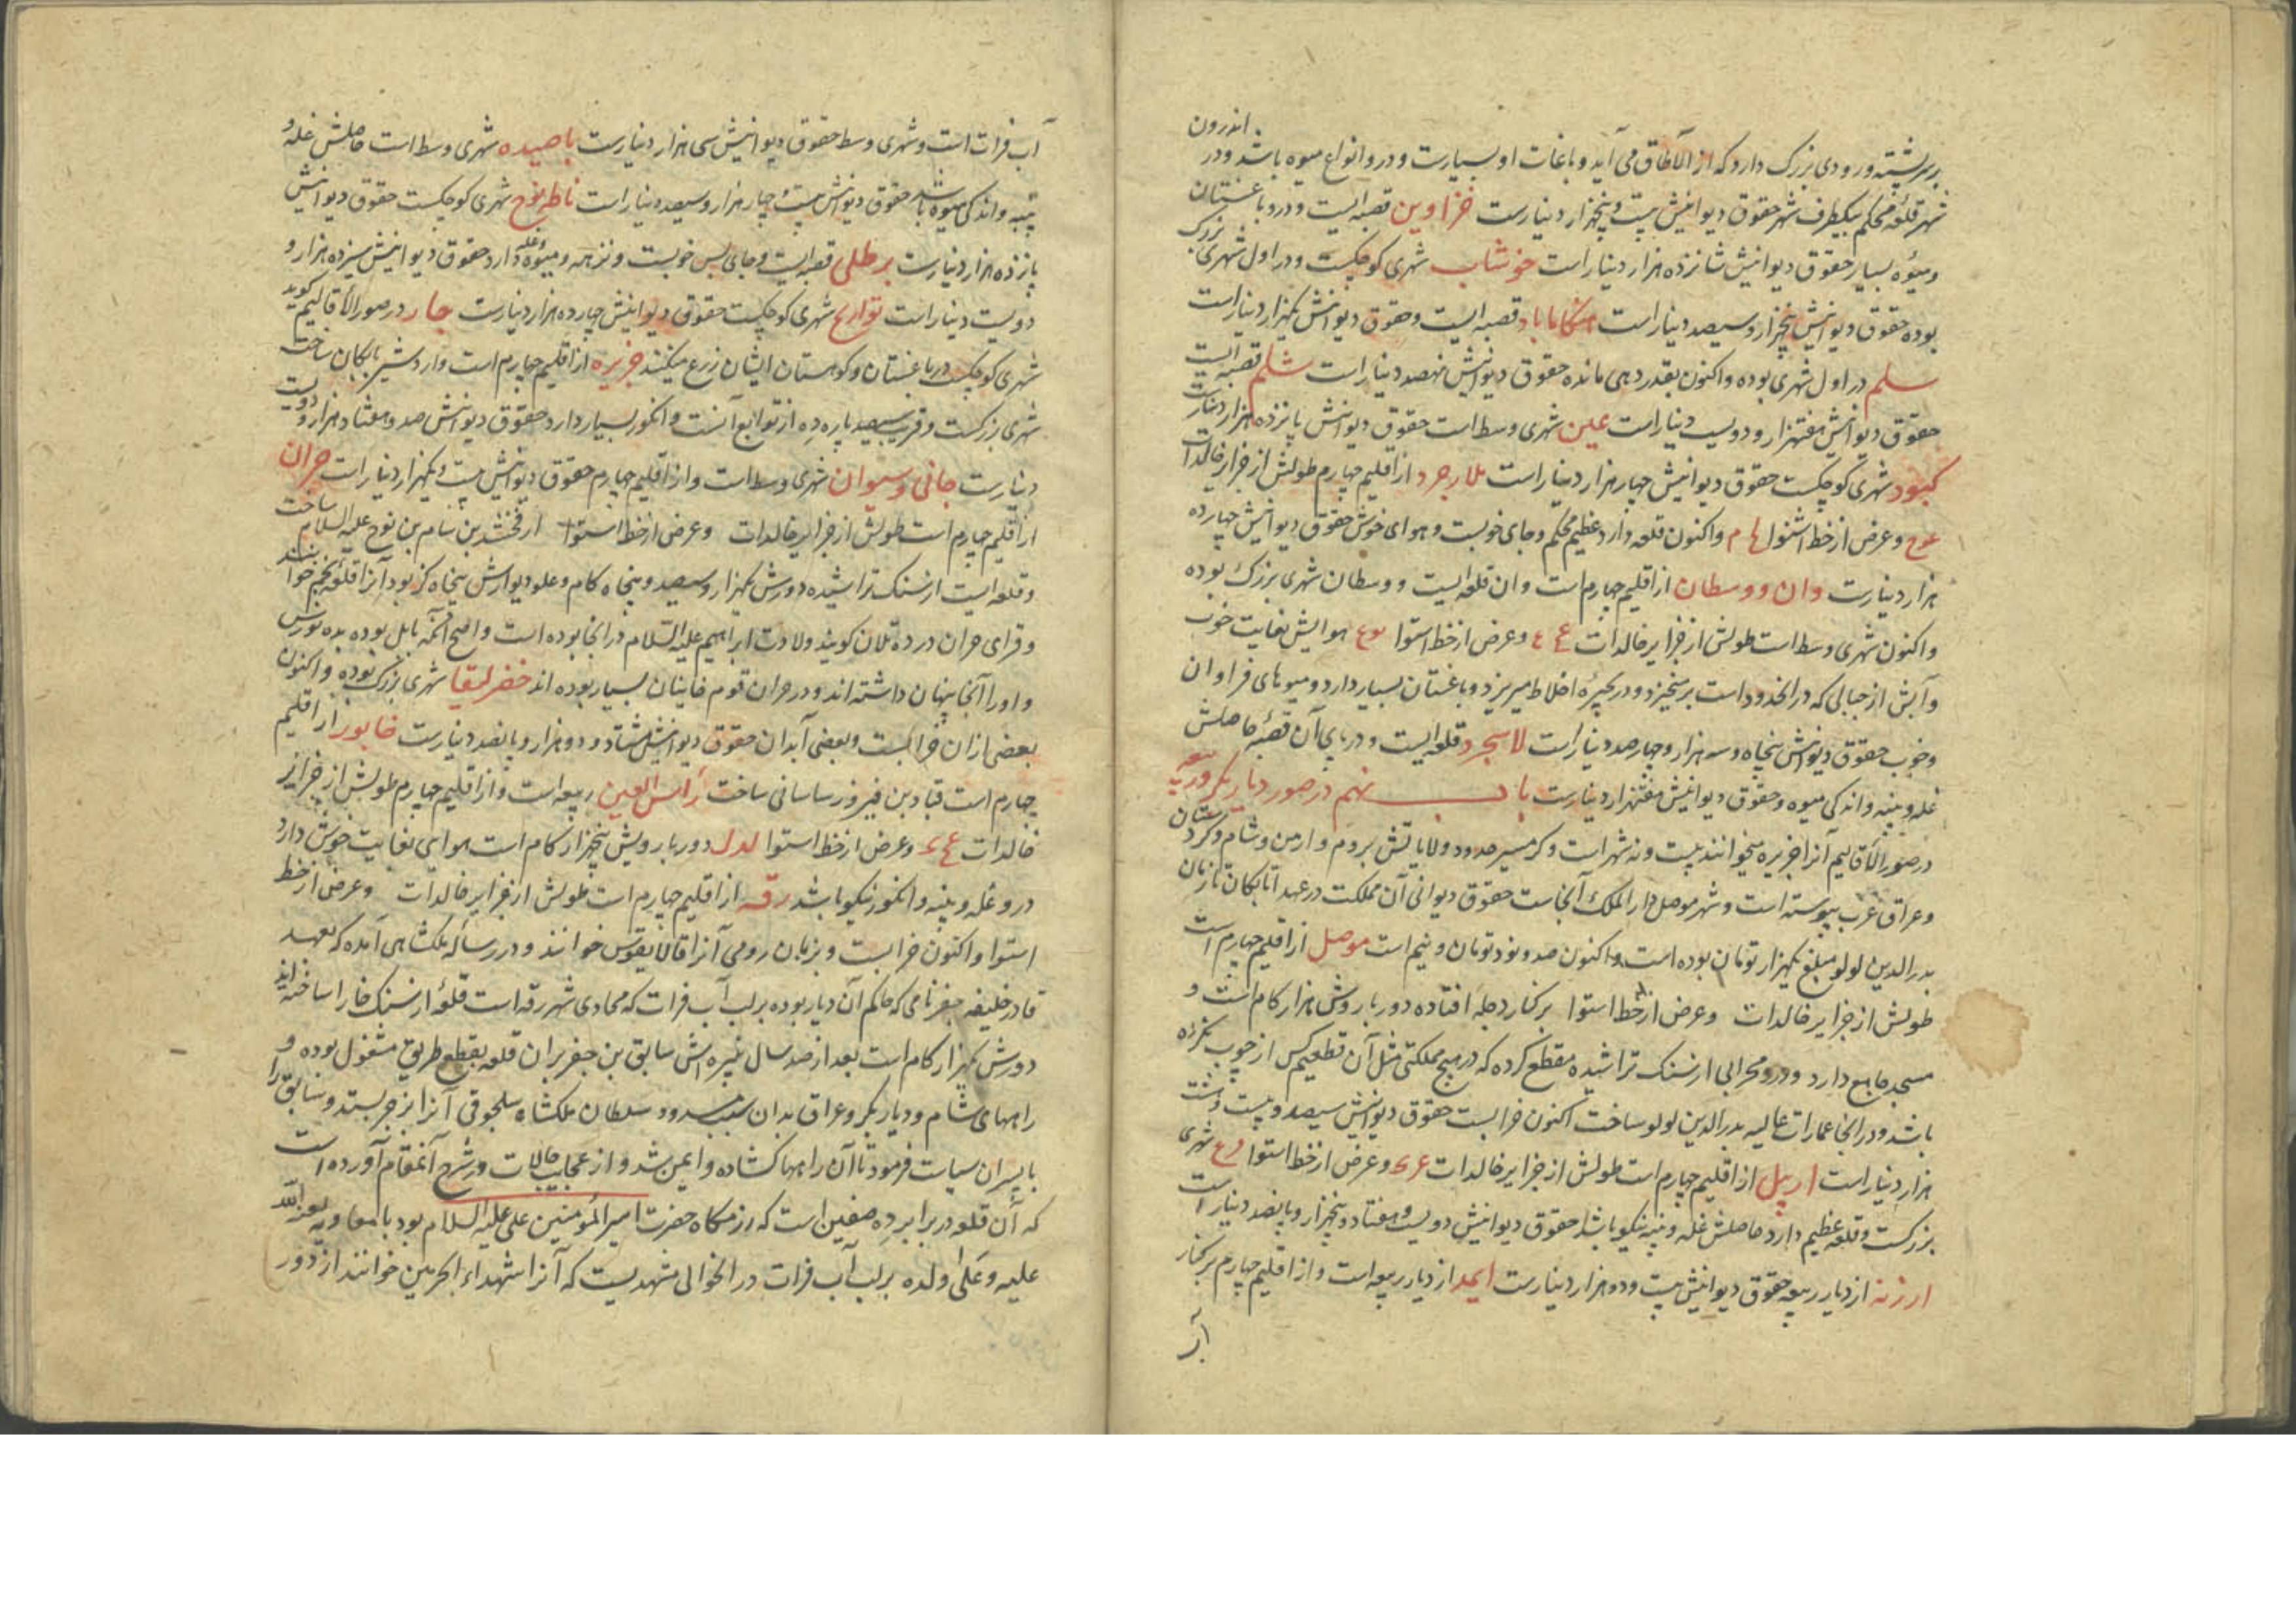 بر سر پشته و رودی بزرک دارد که از الاطاق می آید و باغات او بسیارست و درو انواع میوه باشد و در اندرون
شهر قلعهٔ محکم بیکطرف شهر حقوق دیوانیش بیست و پنجهزار دینارست خراوین قصبه ایست و درو باغستان
و میوه بسیار حقوق دیوانیش شانزده هزار دینار است خوشاب شهری کوچکست و در اول شهری بزرک
بوده حقوق دیوانیش پنجهزار و سیصد دینار است قصبه ایست و حقوق دیوانیش یکهزار دینار است
سلم در اول شهری بوده و اکنون بقدر دهی مانده حقوق دیوانیش دینار است شلم قصبه ایست
حقوق دیوانیش هفتهزار و دویست دینار است عین شهری وسط است حقوق دیوانیش پانزده هزار دینار است
کبود شهری کوچکست حقوق دیوانیش چهار هزار دینار است ملارجرد از اقلیم چهارم طولش از جزایر خالدات
و عرض از خط استوا و اکنون قلعه دارد عظیم محکم و جای خوبست و هوای خوش حقوق دیوانیش چهارده
هزار دینارست وان و وسطان از اقلیم چهارم است وان قلعه ایست و وسطان شهری بزرک بوده
و اکنون شهری وسط است طولش از جزایر خالدات و عرض از خط استوا هوایش بغایت خوب
و آبش از جبالی که در الحدود است برمیخیزد و در بحیرهٔ اخلاط میریزد و باغستان بسیار دارد و میوهای فراوان
و خوب حقوق دیوانیش پنجاه و سه هزار و چهارصد دینار است لاسجرد قلعه ایست و در پای آن قصبهٔ حاصلش
غله و پنبه و اندکی میوه و حقوق دیوانیش هفتهزار دینارست باب نهم در صور دیار بکر و ربیعه
در صور الاقالیم آنرا جزیره میخوانند بیست و نه شهر است و کرمسیر حدود ولایاتش بروم و ارمن و شام و کردستان
و عراق عرب پیوسته است و شهر موصل دار الملک آنجاست حقوق دیوانی آن مملکت در عهد اتابکان تا زمان
بدر الدین لولو مبلغ یکهزار تومان بوده است و اکنون صد و نود تومان و نیم است موصل از اقلیم چهارم است
طولش از جزایر خالدات و عرض از خط استوا بر کنار دجله افتاده دور باروش هزار کام است و
مسجد جامع دارد و درو محرابی از سنک تراشیده مقطع کرده که در هیچ مملکتی مثل آن تقطیع کس از چوب نکرده
باشد و در انجا عمارات عالیه بدر الدین لولو ساخت اکنون خرابست حقوق دیوانیش سیصد و بیست و هشت
هزار دینار است اربیل از اقلیم چهارم است طولش از جزایر خالدات و عرض از خط استوا شهری
بزرکست و قلعه عظیم دارد حاصلش غله و پنبه نیکو باشد حقوق دیوانیش دویست و هفتاد و پنجهزار و پانصد دینار است
ارزنه از دیار ربیعه حقوق دیوانیش بیست و دو هزار دینارست ایمد از دیار ربیعه است و از اقلیم چهارم بر کنار
آب
آب فراتست و شهری وسط حقوق دیوانیش سی هزار دینارست باصیده شهری وسط است حاصلش غله و
پنبه و اندکی میوه باشد حقوق دیوانش بیست و چهار هزار و سیصد دینار است شهری کوچکست حقوق دیوانیش
پانزده هزار دینارست برطلی قصبه ایست و جای بس خوبست و نزهه و میوه و غله دارد حقوق دیوانیش سیزده هزار و
دویست دینار است شهری کوچکست حقوق دیوانیش چهارده هزار دینارست جار در صور الاقالیم کوید
شهری کوچکست در باغستان و کوهستان ایشان زرع میکنند جزیره از اقلیم چهارم است و اردشیر بابکان ساخت
شهری بزرکست و قریب سیصد پاره ده از توابع آنست و انکور بسیار دارد حقوق دیوانیش صد و هفتاد هزار و دویست
دینارست جانی وسوان شهری وسط است و از اقلیم چهارم حقوق دیوانیش بیست و یکهزار دینار است حران
از اقلیم چهارم است طولش از جزایر خالدات و عرض از خط استوا ارفخشد بن سام بن نوح علیه السلام ساخت
و قلعه ایست از سنک تراشیده دورش یکهزار و سیصد و پنجاه کام و علو دیوارش پنجاه کز بود آنرا قلعهٔ نجم خوانند
و قرای حران در ده تلان کویند ولادت ابراهیم علیه السلام در انجا بوده است و اصح آنکه ببابل بوده بده نورش
و او را آنجا پنهان داشته اند و در حران قوم صابیان بسیار بوده اند شهری بزرک بوده و اکنون
بعضی از آن خرابست و بعضی آبادان حقوق دیوانیش هشتاد و دو هزار و پانصد دینارست خابور از اقلیم
چهارم است قباد بن فیروز ساسانی ساخت راس العین ربیعه است و از اقلیم چهارم طولش از جزایر
خالدات و عرض از خط استوا دور بارویش پنجهزار کام است هوای بغایت خوش دارد
درو غله و پنبه و انکور نیکو باشد رقه از اقلیم چهارم است طولش از جزایر خالدات و عرض از خط
استوا و اکنون خرابست و بزبان رومی آنرا قالانیقوس خوانند و در رساله ملکشاهی آمده که بعهد
قادر خلیفه جعفر نامی که حاکم آن دیار بوده بر لب آب فرات که محاذی شهر رقه است قلعهٔ از سنک خارا ساخته اند
دورش یکهزار کام است بعد از صد سال نبیره اش سابق بن جعفر بران قلعه بقطع طریق مشغول بوده و
راههای شام و دیار بکر و عراق بدان سبب مسدود سلطان ملکشاه سلجوقی آنرا بزجر بستد و سابق را
با پسران سیاست فرمود تا آن راهها کشاده و ایمن شد و از عجایب حالات در شرح آنمقام آورده است
که آن قلعه در برابر ده صفین است که رزمکاه حضرت امیر المؤمنین علی علیه السلام بود با معاویه لعنه الله
علیه و علی اولده بر لب آب فرات در الحوالی مشهدیست که آنرا شهداء الحرمین خوانند از دور